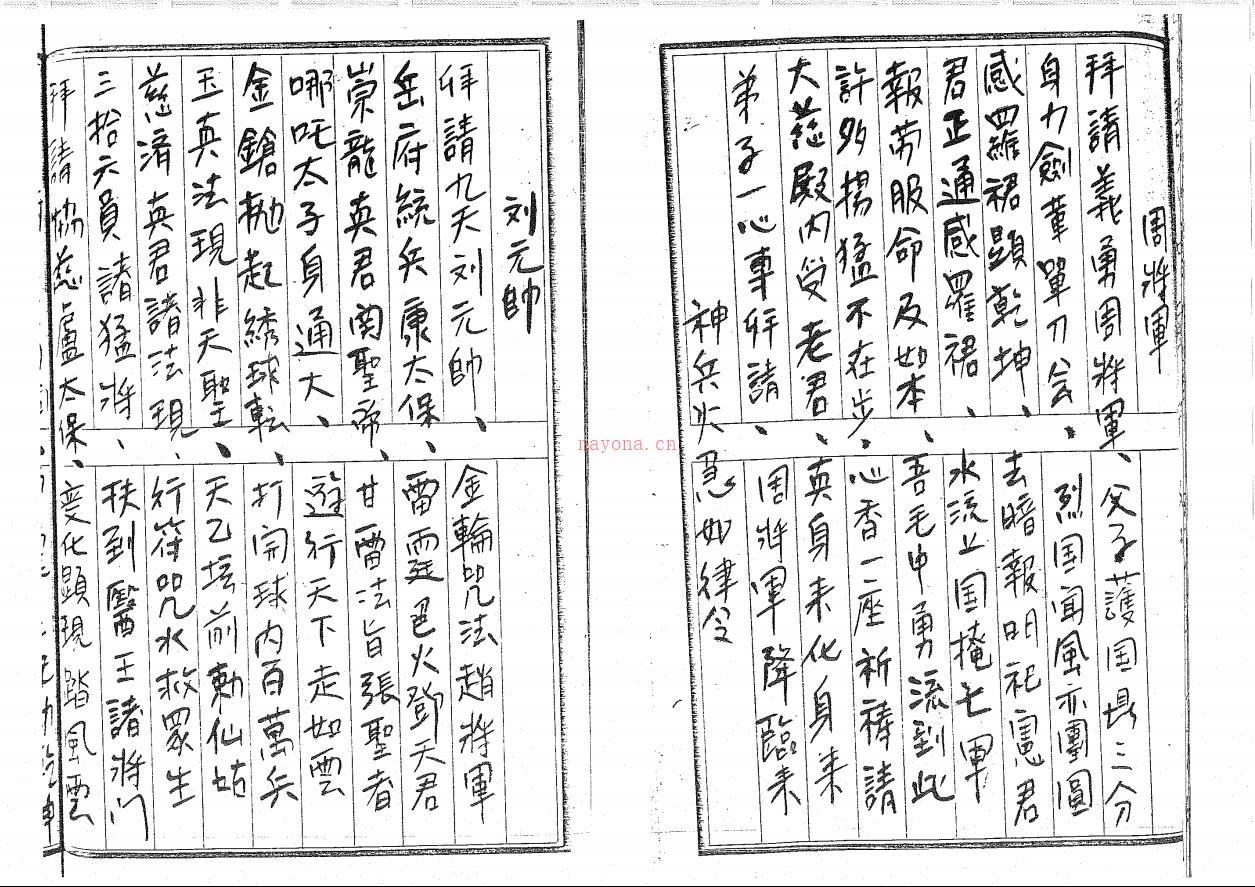 周将軍
拜請義勇周將軍、父子護国鼎三分
身力劍華單刀会、烈国闻風亦團圓
感四維裙顕乾坤、去暗報明祀憲君
君正通感羅裙、水流止国掩七軍
報劳服命及如本、吾毛申勇流到此
大慈殿内受老君、英身来化身来
許多揚猛不在步、心香一座祈禱請
弟子一心專拝請、周將軍降臨来
神兵火急如律令
刘元帥
拝請九天刘元帥、金輪咒法趙將軍
岳府統兵康太保、雷霆邑火鄧天君
崇龍真君関聖帝、甘雷法旨張聖者
哪吒太子身通大、遊行天下走如雲
金鎗抛起綉球転、打開球内百萬兵
玉真法現非天聖、天乙坛前勅仙姑
慈濟真君諸法現、行符咒水救眾生
三拾六員諸猛將、扶到醫王諸將门
拜請協慈盧太保、变化顕現踏風雲
nayona.cn